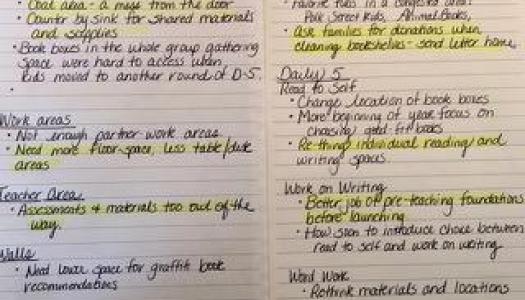 · Coat area - a mess from the door
· Counter by sink for shared materials
and supplies
· Book boxes in the whole group gathering
space were hard to access when
kids moved to another round of D-5.
·
Work areas
· Not enough partner work areas
· Need more floor space, less table/desk
areas
Teacher Area
· Assessments & materials too out of the
way.
Walls
· Need lower space for graffiti book
recommendations
Polk Street Kids, Animal Books,
· Ask families for donations when
cleaning bookshelves - send letter home.
Daily 5
Read to Self
· Change location of book boxes
· More beginning of year focus on
choosing good-fit books
· Re-think individual reading and
writing spaces.
Work on Writing
· Better job of pre-teaching foundations
before launching
· How soon to introduce choice between
read to self and work on writing
Word Work
· Rethink materials and locations